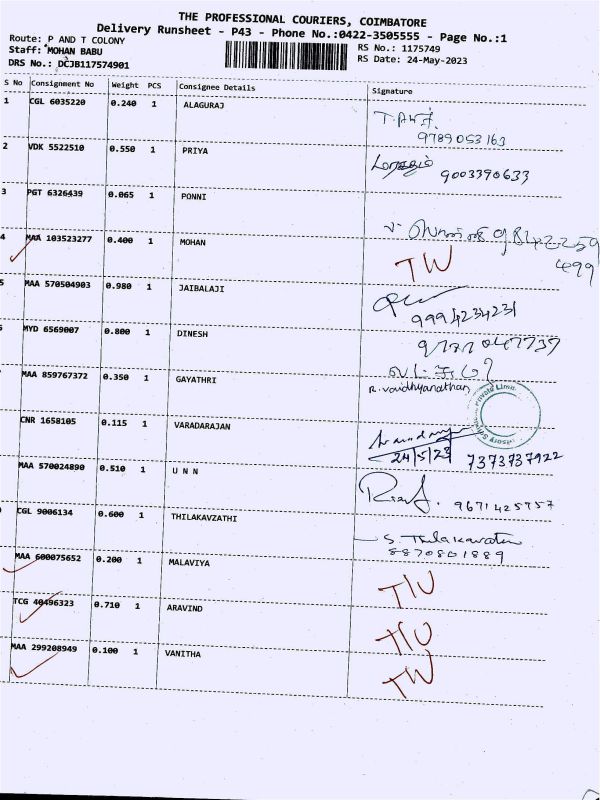 THE PROFESSIONAL COURIERS, COIMBATORE
Delivery Runsheet - P43 - Phone No.:0422-3505555 - Page No.:1
Route: P AND T COLONY
Staff: MOHAN BABU
RS No.: 1175749
DRS No.: DCJB117574901
RS Date: 24-May-2023
S No Consignment No Weight PCS Consignee Details Signature
1 CGL 6035220 0.240 1 ALAGURAJ
9789053163
2 VDK 5522510 0.550 1 PRIYA
9003390633
3 PGT 6326439 0.065 1 PONNI
499
4 MAA 103523277 0.400 1 MOHAN TW
5 MAA 570504903 0.980 1 JAIBALAJI
9994234231
MYD 6569007 0.800 1 DINESH
MAA 859767372 0.350 1 GAYATHRI R. Vaidhyanathan
CNR 1658105 0.115 1 VARADARAJAN
24/5/23 7373737922
MAA 570024890 0.510 1 U N N
9671425757
CGL 9006134 0.600 1 THILAKAVZATHI
S. Thilakavathi
8870801889
MAA 600075652 0.200 1 MALAVIYA TW
TCG 40496323 0.710 1 ARAVIND TW
MAA 299208949 0.100 1 VANITHA TW